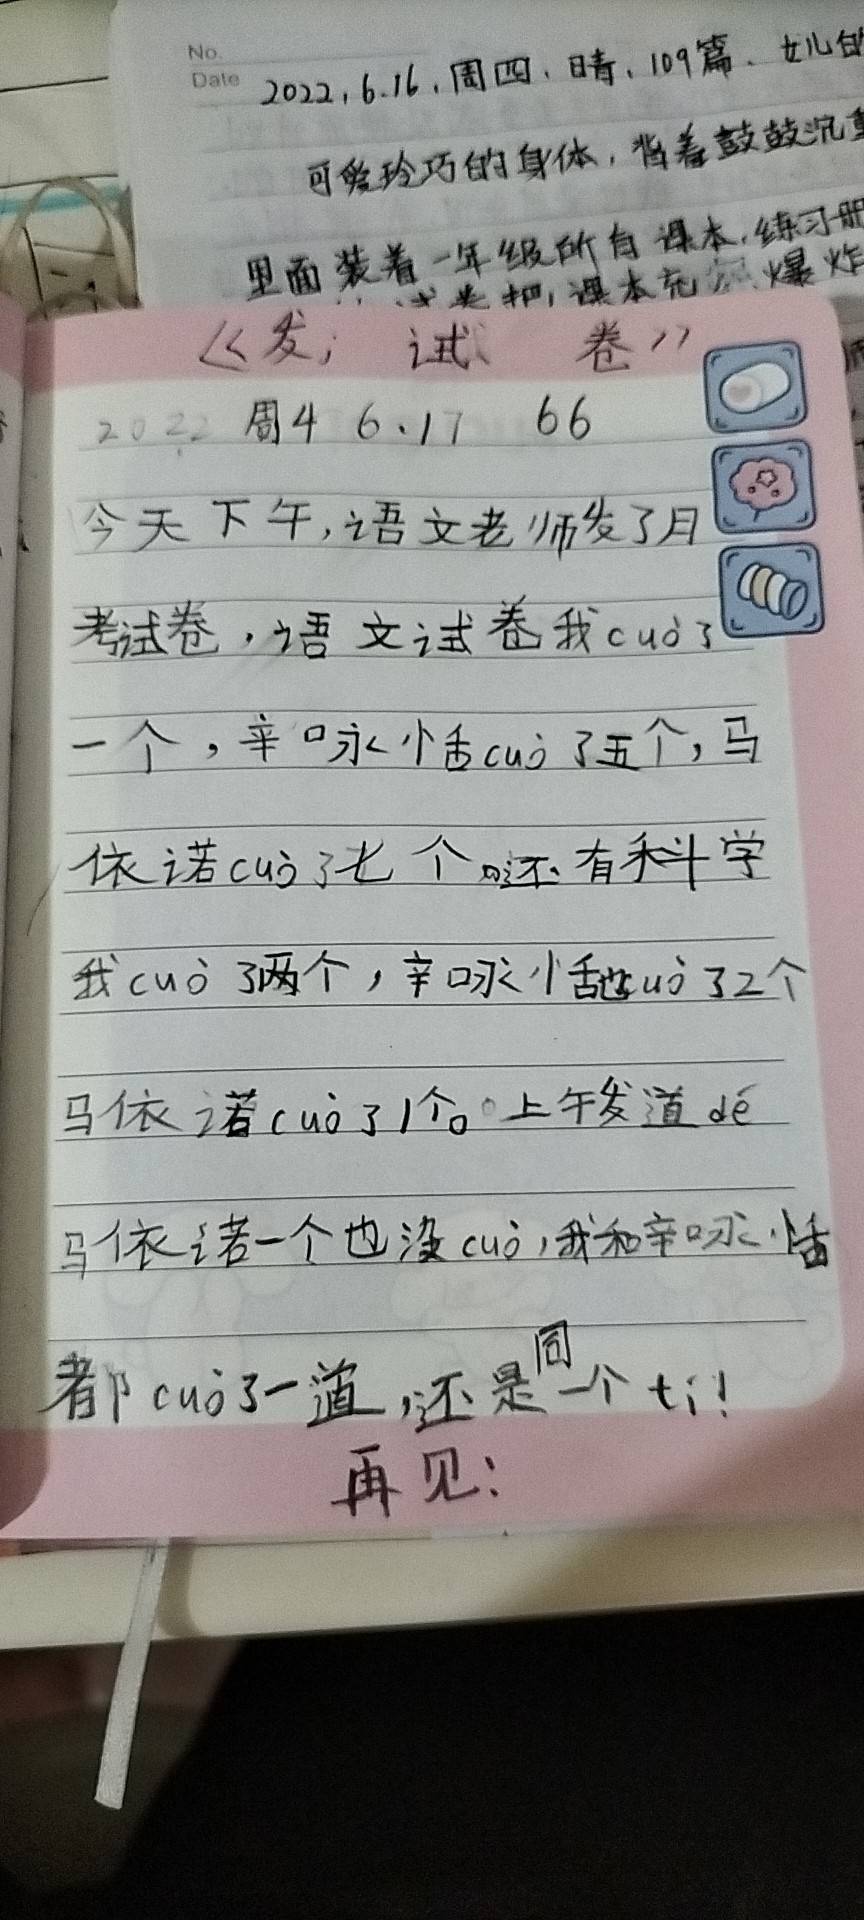 No.
Date 2022,6.16,周四、晴、109篇、女儿的
可爱玲巧的身体,背着鼓鼓沉重
里面装着一年级所有课本,练习册
把,课本充 爆炸
《发;试卷》
2022 周4 6.17 66
今天下午,语文老师发了月
考试卷,语文试卷我cuò了
一个,辛咏恬cuò了五个,马
依诺cuò了七个。还有科学
我cuò了两个,辛咏恬cuò了2个
马依诺cuò了1个。上午发道dé
马依诺一个也没cuò,我和辛咏恬
都cuò了一道,还是同一个tí!
再见: